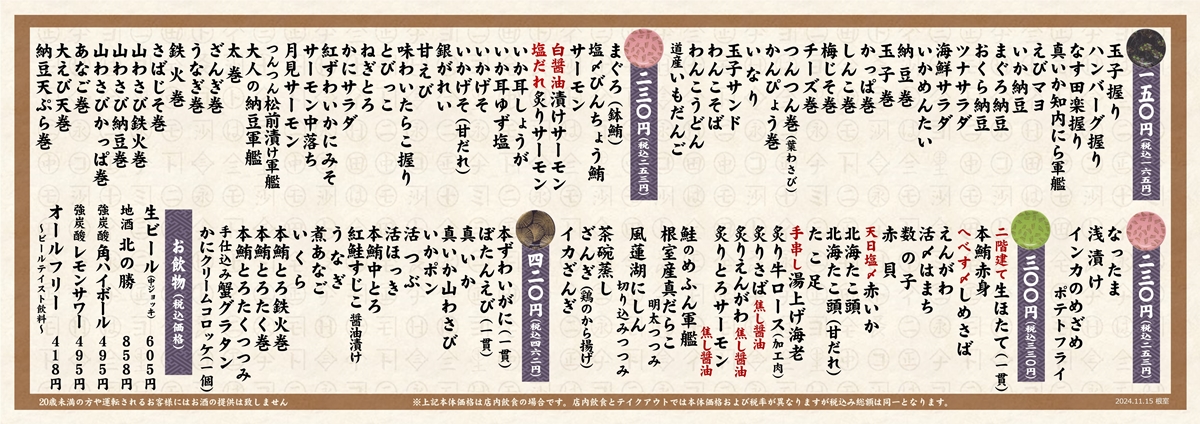 一五〇円(税込一六五円)
玉子握り
ハンバーグ握り
なす田楽握り
真いか知内にら軍艦
えびマヨ
いか納豆
まぐろ納豆
おくら納豆
ツナサラダ
海鮮サラダ
いかめんたい
納豆巻
玉子巻
かっぱ巻
しんこ巻
梅じそ巻
チーズ巻
つんつん巻(葉わさび)
かんぴょう巻
いなり
玉子サンド
わんこそば
わんこうどん
道産いもだんご
二三〇円(税込二五三円)
まぐろ(鉢鮪)
塩〆びんちょう鮪
サーモン
白醤油漬けサーモン
塩だれ炙りサーモン
いか耳しょうが
いか耳ゆず塩
いかげそ
いかげそ(甘だれ)
銀がれい
甘えび
味わいたらこ握り
とびっこ
ねぎとろ
かにサラダ
紅ずわいかにみそ
サーモン中落ち
月見サーモン
つんつん松前漬け軍艦
大人の納豆軍艦
太巻
ざんぎ巻
うなぎ巻
鉄火巻
さばじそ巻
山わさび鉄火巻
山わさび納豆巻
山わさびかっぱ巻
あなご巻
大えび天巻
納豆天ぷら巻
二三〇円(税込二五三円)
なったま
浅漬け
インカのめざめ
ポテトフライ
三〇〇円(税込三三〇円)
二階建て生ほたて(一貫)
本鮪赤身
へべす〆しめさば
えんがわ
活〆はまち
数の子
赤貝
天日塩〆赤いか
北海たこ頭
北海たこ頭(甘だれ)
たこ足
手串し湯上げ海老
炙り牛ロース(加工肉)
炙りさば焦し醤油
炙りえんがわ焦し醤油
炙りとろサーモン焦し醤油
鮭のめふん軍艦
根室産真だらこ
明太つつみ
風蓮湖にしん
切り込みつつみ
茶碗蒸し
ざんぎ(鶏のから揚げ)
イカざんぎ
四二〇円(税込四六二円)
本ずわいがに(一貫)
ぼたんえび(一貫)
真いか
真いか山わさび
いかポン
活つぶ
活ほっき
本鮪中とろ
紅鮭すじこ醤油漬け
うなぎ
煮あなご
いくら
本鮪とろ鉄火巻
本鮪とろたく巻
本鮪とろたくつつみ
手仕込み蟹グラタン
かにクリームコロッケ(一個)
お飲物(税込価格)
生ビール(中ジョッキ) 605円
地酒 北の勝 858円
強炭酸角ハイボール 495円
強炭酸レモンサワー 495円
オールフリー 418円
~ビールテイスト飲料~
20歳未満の方や運転されるお客様にはお酒の提供は致しません
※上記本体価格は店内飲食の場合です。店内飲食とテイクアウトでは本体価格および税率が異なりますが税込み総額は同一となります。
2024.11.15 根室